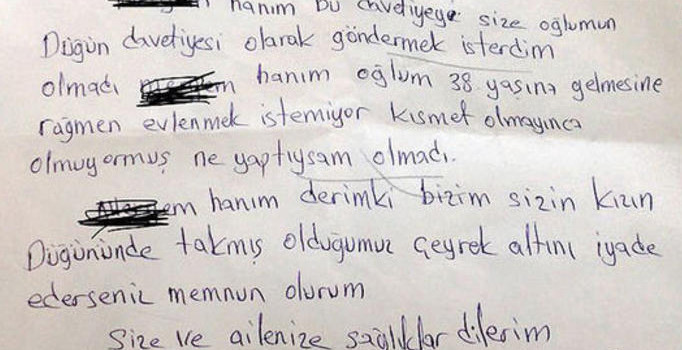 hanım bu davetiyeye size oğlumun
Düğün davetiyesi olarak göndermek isterdim
olmadı hanım oğlum 38 yaşına gelmesine
rağmen evlenmek istemiyor kısmet olmayınca
olmuyormuş ne yaptıysam olmadı.
em hanım derimki bizim sizin kızın
Düğününde takmış olduğumuz çeyrek altını iyade
ederseniz memnun olurum
Size ve ailenize sağlıklar dilerim